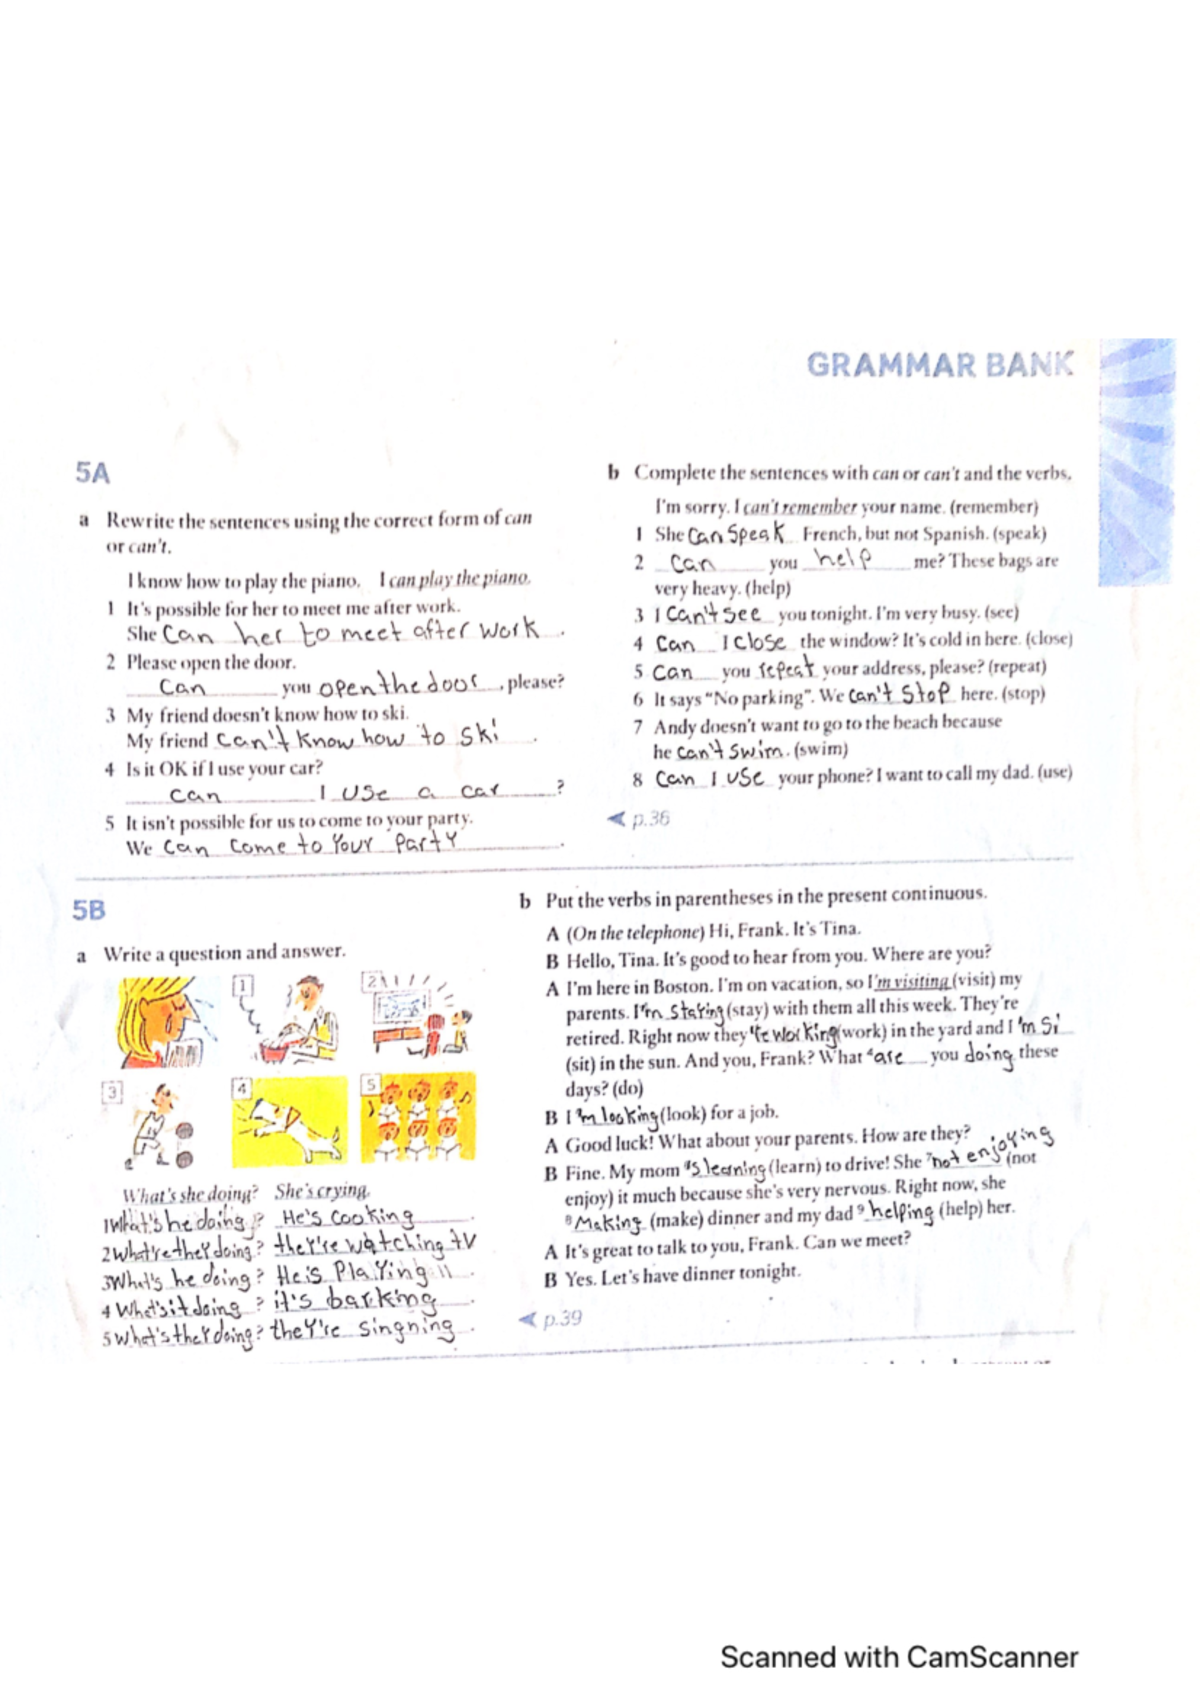 GRAMMAR BANK
5A
a Rewrite the sentences using the correct form of can
or can't.
I know how to play the piano. I can play the piano.
1 It's possible for her to meet me after work.
She Can her to meet after work .
2 Please open the door.
Can you open the door , please?
3 My friend doesn't know how to ski.
My friend can't know how to ski .
4 Is it OK if I use your car?
can I use a car ?
5 It isn't possible for us to come to your party.
We can come to Your Party .
b Complete the sentences with can or can't and the verbs.
I'm sorry. I can't remember your name. (remember)
1 She Can Speak French, but not Spanish. (speak)
2 Can you help me? These bags are
very heavy. (help)
3 I Can't see you tonight. I'm very busy. (see)
4 Can I close the window? It's cold in here. (close)
5 Can you repeat your address, please? (repeat)
6 It says "No parking". We can't stop here. (stop)
7 Andy doesn't want to go to the beach because
he can't swim. (swim)
8 Can I use your phone? I want to call my dad. (use)
p.36
5B
a Write a question and answer.
1
2
3
4
5
What's she doing? She's crying.
1 What's he doing ? He's cooking .
2 What're they doing? they're watching tv
3 What's he doing ? He is Playing .
4 What's it doing ? it's barking .
5 What's they doing? they're singning .
b Put the verbs in parentheses in the present continuous.
A (On the telephone) Hi, Frank. It's Tina.
B Hello, Tina. It's good to hear from you. Where are you?
A I'm here in Boston. I'm on vacation, so I'm visiting (visit) my
parents. I'm staying (stay) with them all this week. They're
retired. Right now they're working (work) in the yard and I 'm si
(sit) in the sun. And you, Frank? What 4 are you doing these
days? (do)
B I 'm looking (look) for a job.
A Good luck! What about your parents. How are they?
B Fine. My mom 's learning (learn) to drive! She 7 not enjoying (not
enjoy) it much because she's very nervous. Right now, she
8 Making (make) dinner and my dad 9 helping (help) her.
A It's great to talk to you, Frank. Can we meet?
B Yes. Let's have dinner tonight.
p.39
Scanned with CamScanner